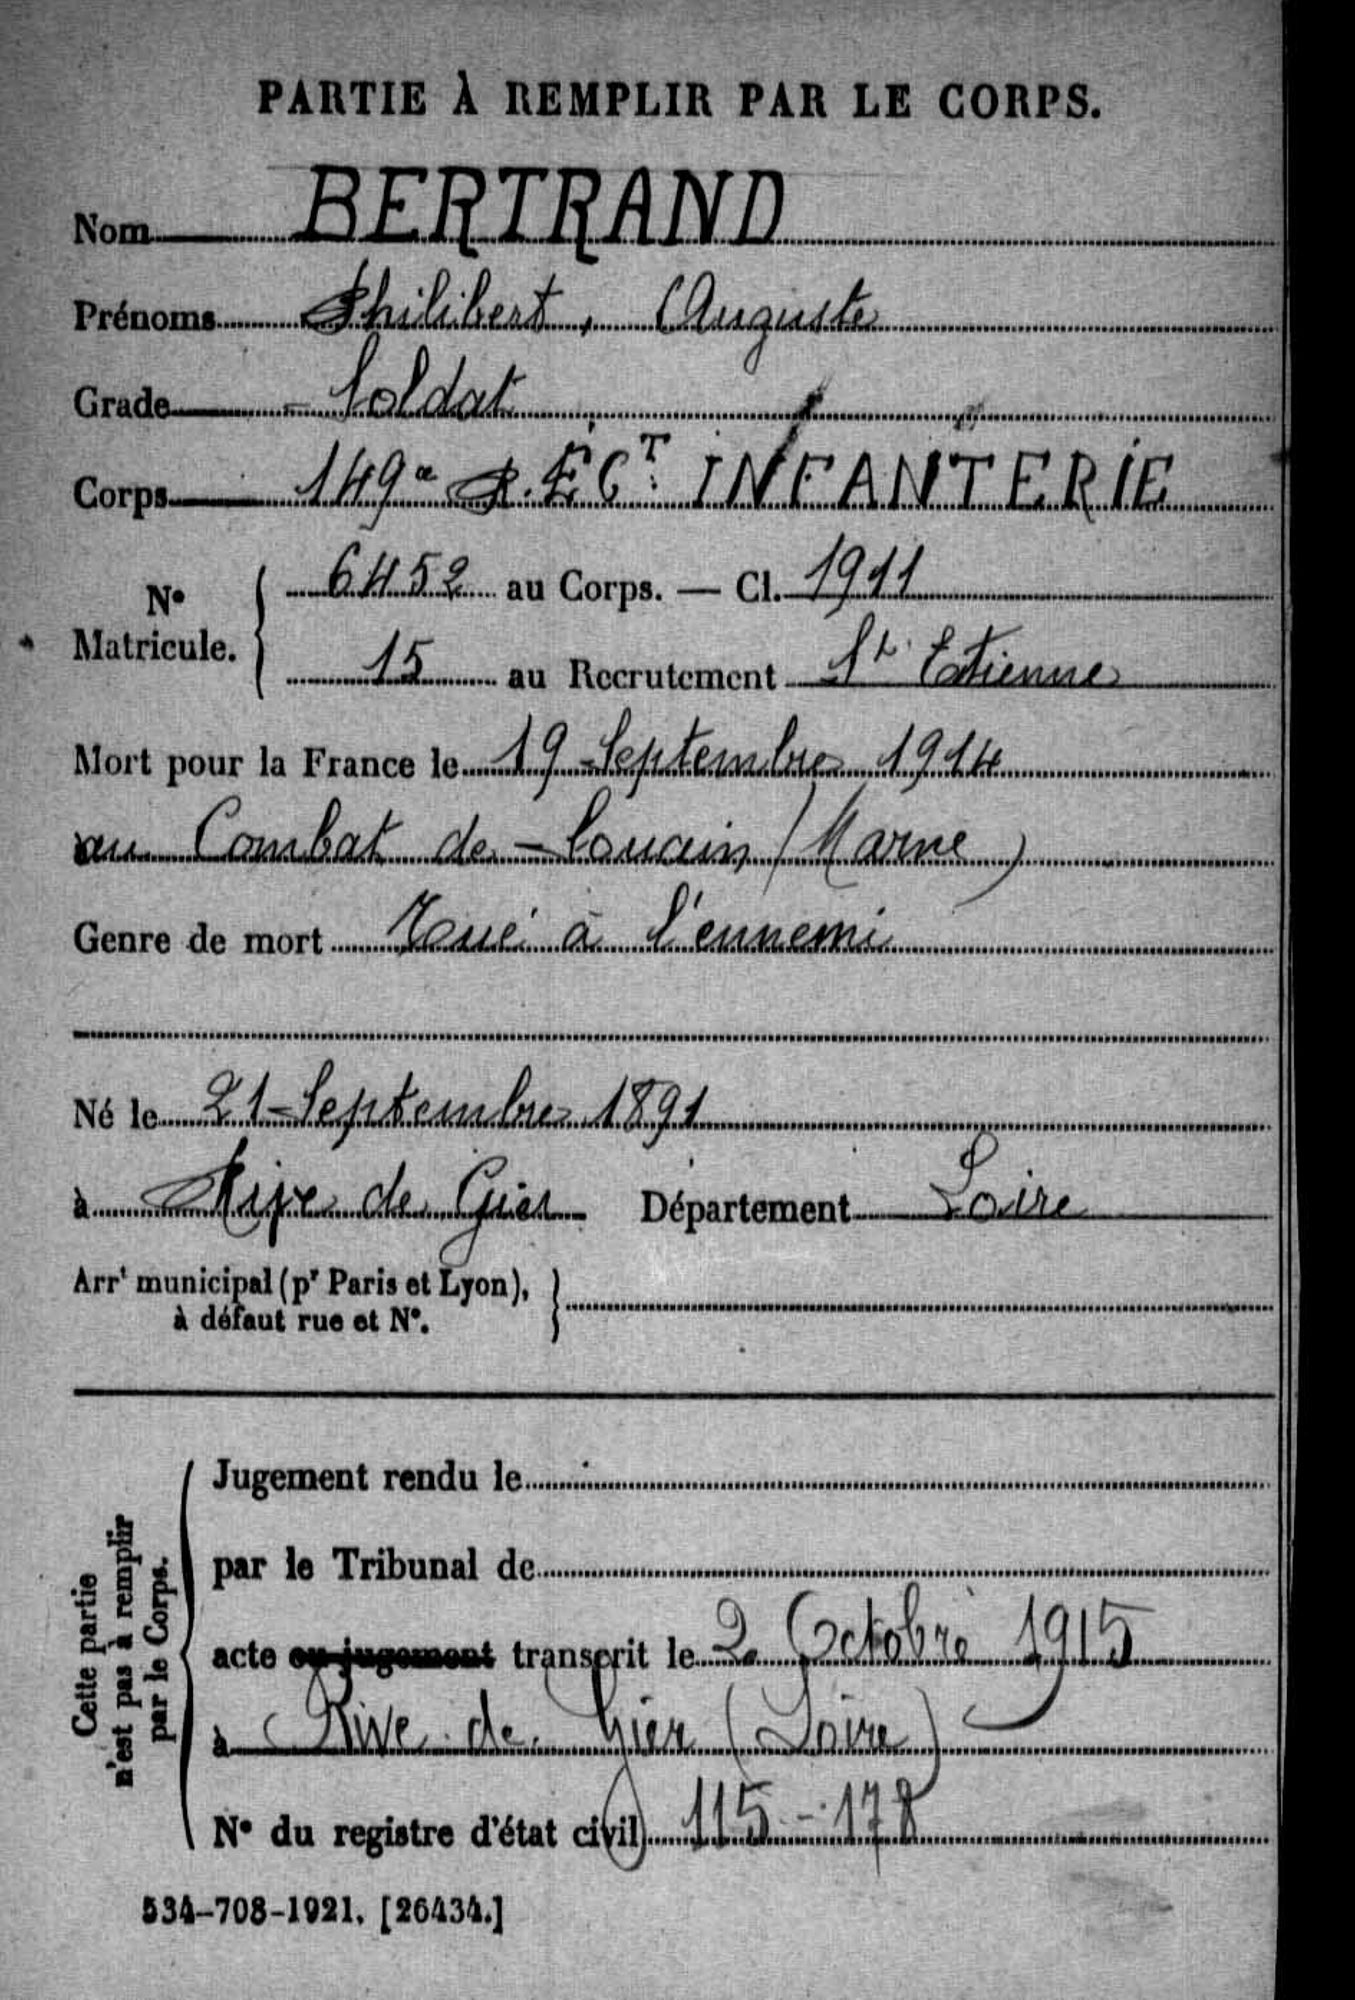 PARTIE À REMPLIR PAR LE CORPS.
Nom BERTRAND
Prénoms Philibert, Auguste
Grade Soldat
Corps 149e RÉGT INFANTERIE
No Matricule. { 6452 au Corps. — Cl. 1911
15 au Recrutement St Etienne
Mort pour la France le 19 Septembre 1914
au Combat de Souain (Marne)
Genre de mort Tué à l'ennemi
Né le 21 Septembre 1891
à Rive de Gier Département Loire
Arrt municipal (pr Paris et Lyon), }
à défaut rue et No.
Cette partie
n'est pas à remplir
par le Corps.
Jugement rendu le
par le Tribunal de
acte ou jugement transcrit le 2 Octobre 1915
à Rive de Gier (Loire)
No du registre d'état civil 115 - 178
534-708-1921. [26434.]